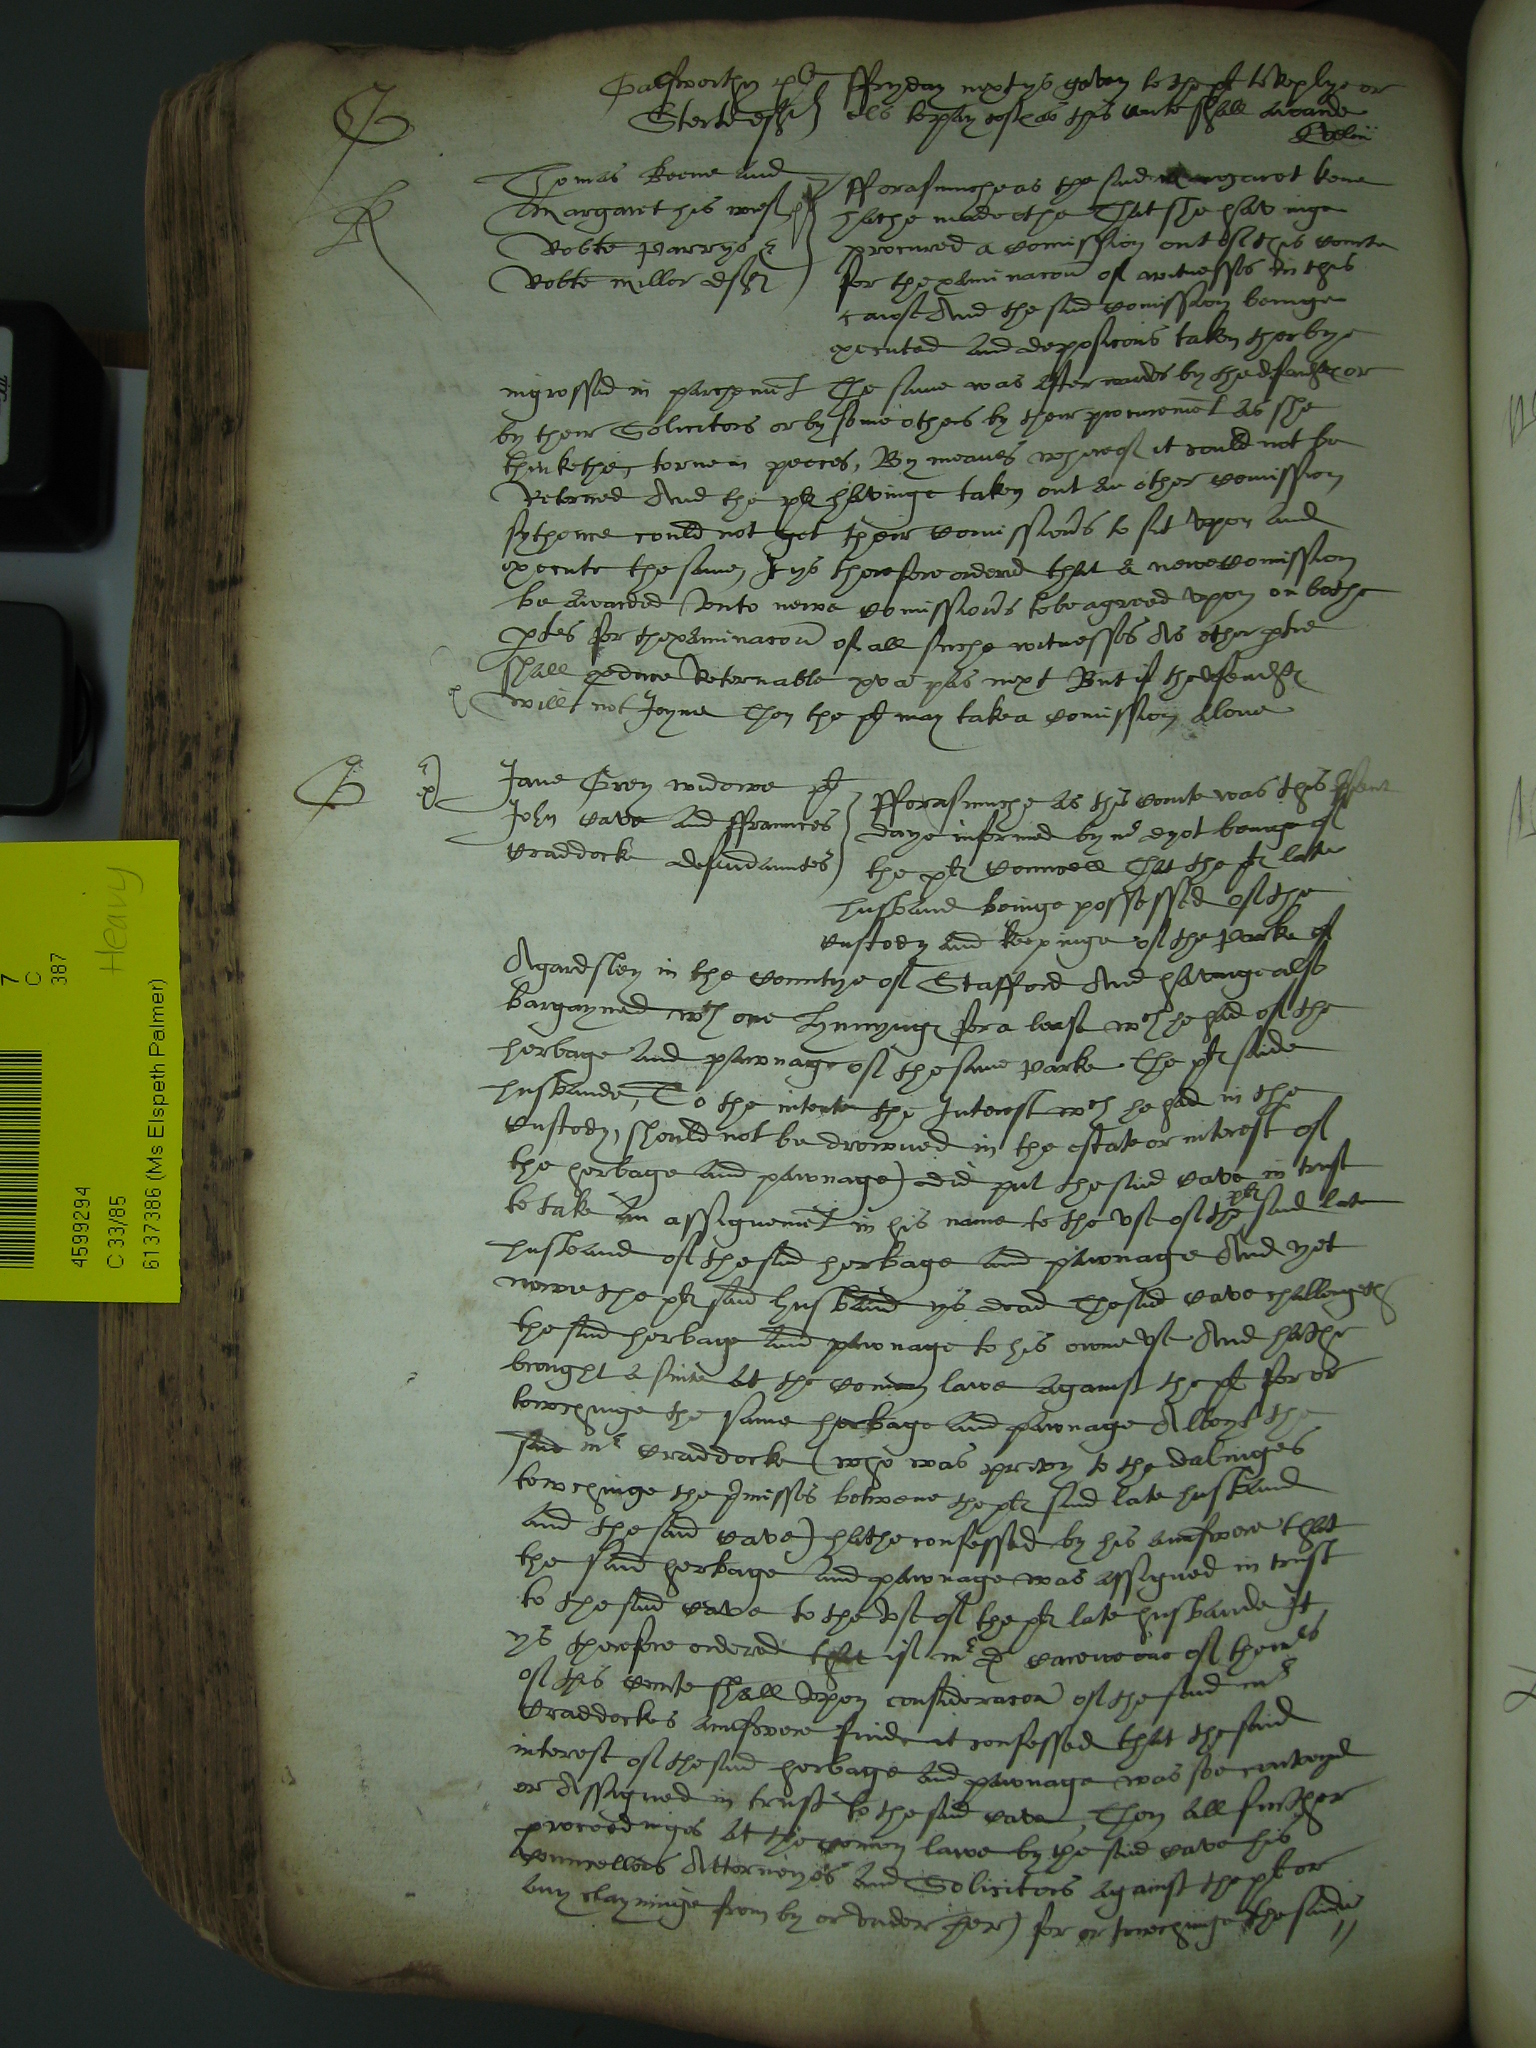 G
Galsworthy pl ffryday next ys geven to the pl to Replye or
Sterte defts els to pay costs as this Courte shall awarde
K
Thomas Keene and
Margaret his wief pl
Robte Parrys &
Robte Miller defts
fforasmuche as the said Margaret Kene
hathe made othe That she havinge
procured a Comission out of this Courte
for thexaminacon of witnesses in this
cause And the said Comission beinge
executed and deposicons taken therbye
ingrossed in parchement The same was afterwards by the defendtes or
by their Solicitors or by some others by their procurement as she
thinkethe, torne in peeces, By meanes whereof it could not be
Retorned And the pltes havinge taken out an other Comission
sythence could not get their Comissioners to sit upon and
execute the same, It ys therefore ordered that a newe Comission
be awarded Unto newe Comissioners to be agreed upon on bothe
ptes for thexaminacon of all suche witnesses As ether ptie
shall produce Retornable xva pas next But if the defendtes
will not Joyne Then the pl may take a Comission alone
G
Jane Grey widowe pl
John Cave and ffraunces
Craddocke defendauntes
fforasmuche as this Courte was this present
daye informed by mr eyot beinge of
the pltes Councell That the pltes late
husband beinge possessed of the
Custody and keepinge of the Parke of
Agardsley in the Countye of Stafford And havinge also
bargayned wth one Hynnyng for a lease wch he had of the
herbage and pawnage of the same Parke The pltes saide
husbande, To the intente the Interest wch he had in the
Custody, should not be drowned in the estate or interest of
the herbage and pawnage) did put the said Cave in trust
to take an assignement in his name to the use of the pltes said late
husband of the said herbage and pawnage And yet
nowe the pltes said husband ys dead The said Cave challengeth
the said herbage and pawnage to his owne use And hathe
brought a suite at the Comon lawe against the pl for or
towchinge the same herbage and pawnage Albeyt the
said mr Craddocke (who was privy to the dealinges
towchinge the pmisses betwene the pltes said late husband
and the said Cave) hathe confessed by his aunswere that
the said herbage and pawnage was assigned in trust
to the said Cave to the use of the pltes late husbande It
ys therefore ordered that if mr D Carewe one of the mrs
of this Courte shall upon consideracon of the said mr
Craddockes aunswere finde it confessed that the said
interest of the said herbage and pawnage was soe conveyed
or Assigned in trust to the said Cave, Then all further
proceedinges at the Comon lawe by the said Cave his
Councellors Attorneyes and Solicitors against the pl or
any clayminge from by or under her) for or towchinge the saide
7
C
387
Heavy
4599294
C 33/85
6137386 (Ms Elspeth Palmer)